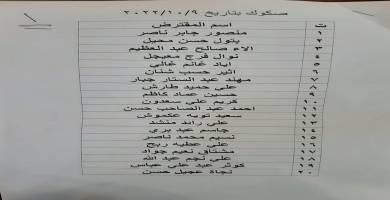 صكوك بتاريخ ٢٠٢٢/١٠/٩
ت اسم المقترض
١ منصور جابر ناصر
٢ بتول حسن محيل
٣ الاء صالح عبد العظيم
٤ نوال فرج معيجل
٥ اياد غانم غالي
٦ اثير حسب شنان
٧ مهند عبد الستار جبار
٨ علي حميد طارش
٩ حسين عماد كاظم
١٠ كريم علي سعدون
١١ احمد عبد الصاحب حسن
١٢ سعيد تويه عكموش
١٣ علي رائد منشد
١٤ جاسم عبد بري
١٥ نسيم محمد ناصر
١٦ علي عطيه ربح
١٧ مشتاق نعيم جواد
١٨ علي نجم عبد الله
١٩ كوثر عبد علي عباس
٢٠ نجاة عجيل حسن